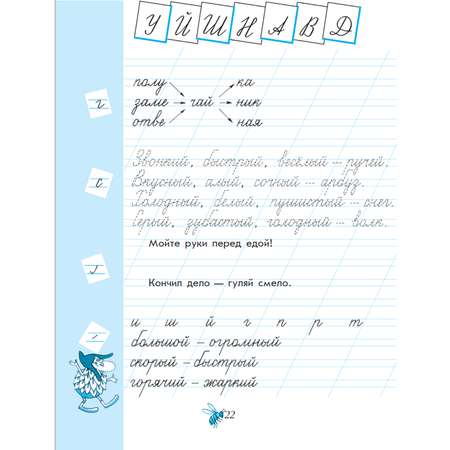 У Й Ш Н А В Д
полу ка
г заме чай ник
отве ная
с Звонкий, быстрый, весёлый – ручей.
Вкусный, алый, сочный – арбуз.
Холодный, белый, пушистый – снег.
Серый, зубастый, голодный – волк.
Мойте руки перед едой!
Кончил дело — гуляй смело.
и ш й г п р т
большой – огромный
скорый – быстрый
горячий – жаркий
22